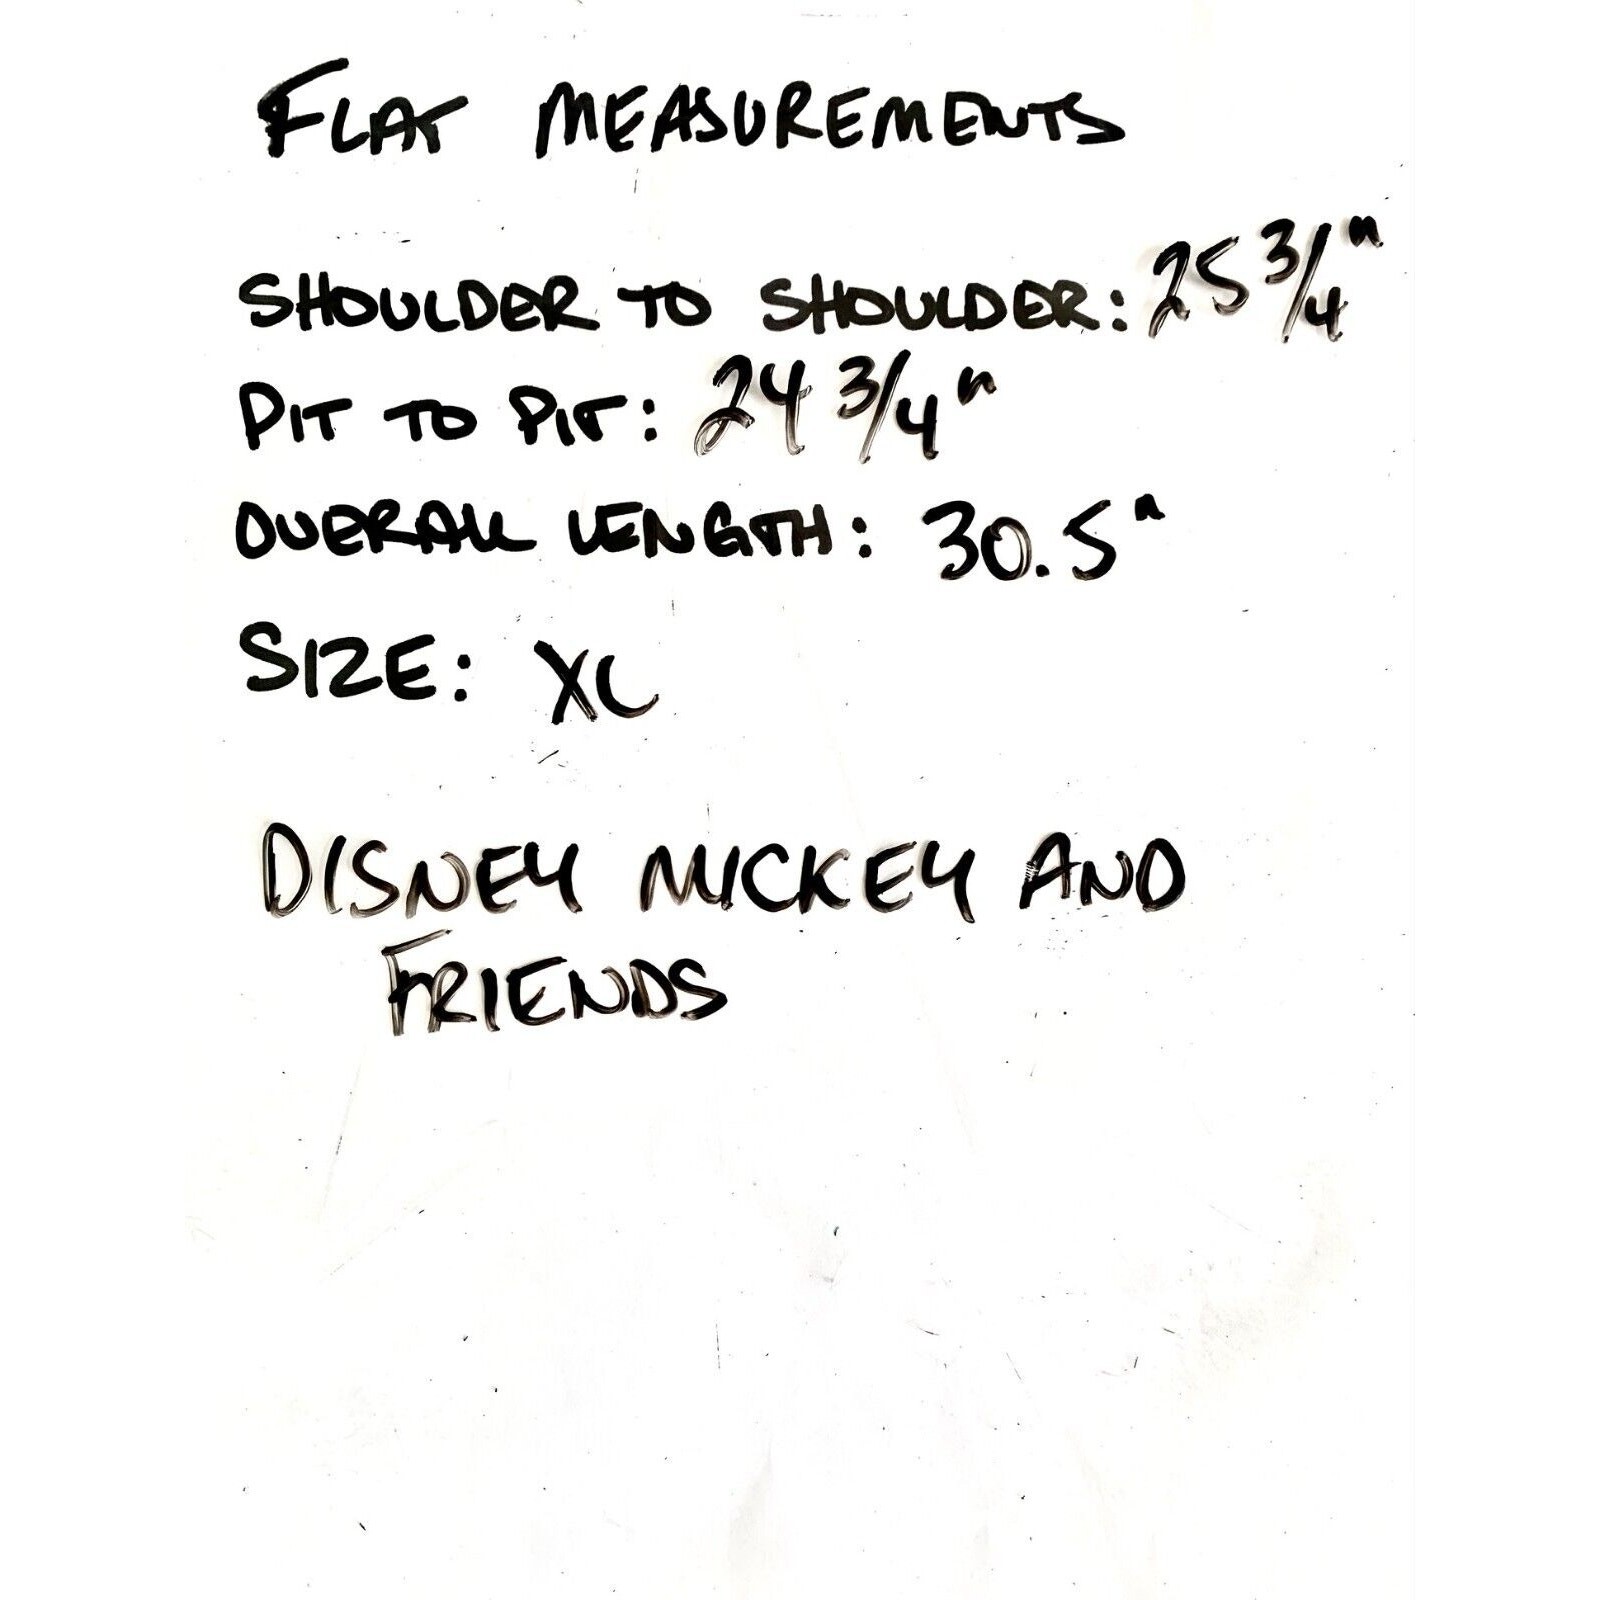 FLAT MEASUREMENTS
SHOULDER TO SHOULDER: 25 3/4"
PIT TO PIT: 24 3/4"
OVERALL LENGTH: 30.5"
SIZE: XL
DISNEY MICKEY AND
FRIENDS